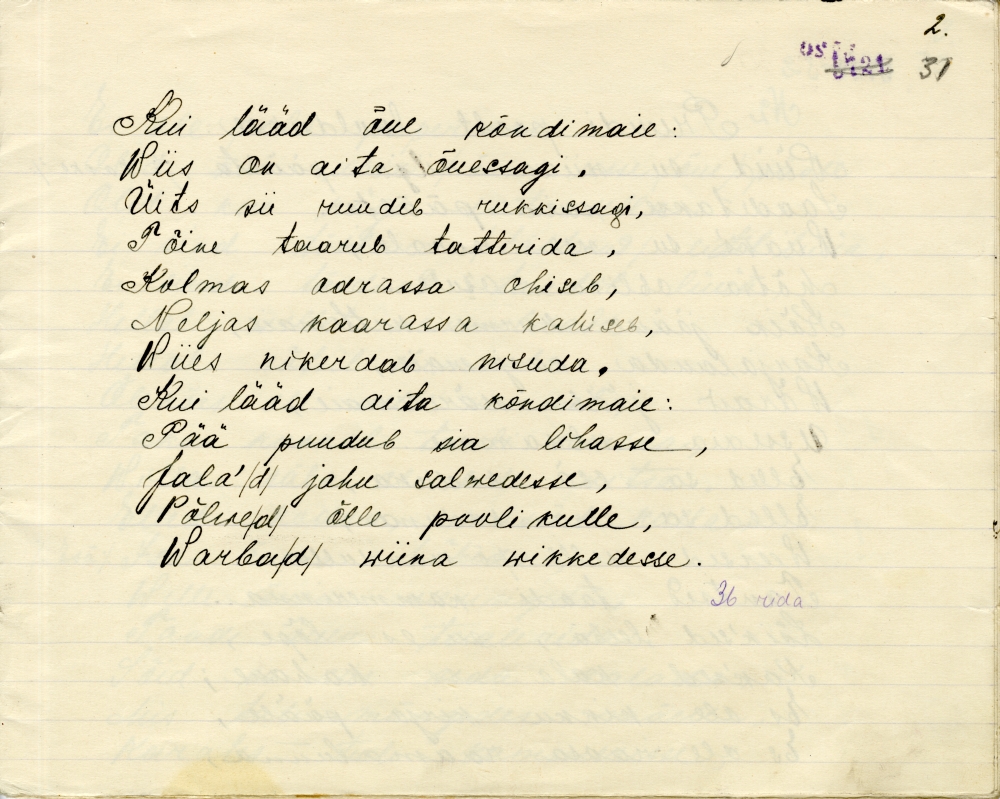 2.
31
Kui lääd õue kõndimaie:
Wiis on aita õuessagi,
Üits sii ruudib rukkissagi,
Tõine taarub tatterida,
Kolmas odrassa ohiseb,
Neljas kaarassa kahiseb,
Wiies nikerdab nisuda.
Kui lääd aita kõndimaie:
Pää puudub sia lihasse,
Jala'/d/ jahu salwedesse,
Põlwe/d/ õlle poolikulle,
Warba/d/ wiina wikkedesse.
36 rida